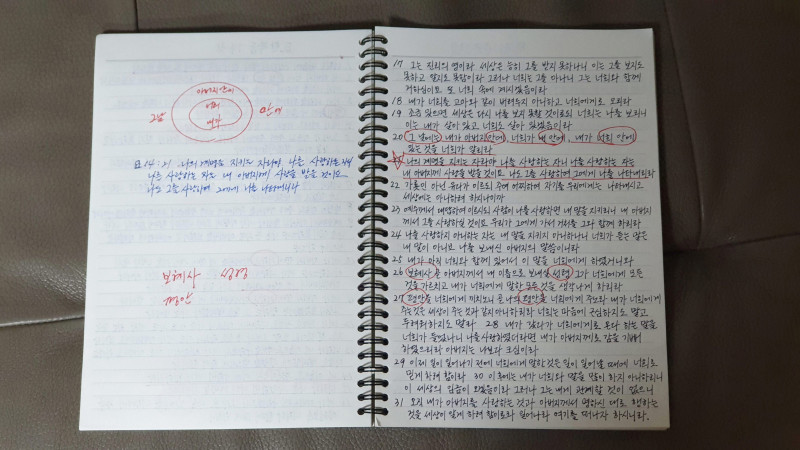 아버지안에
너희
내가
그날
안에
요 14:21 나의 계명을 지키는 자라야 나를 사랑하는 자니
나를 사랑하는 자는 내 아버지께 사랑을 받을 것이요
나도 그를 사랑하여 그에게 나를 나타내리라
보혜사 성령
평안
17 그는 진리의 영이라 세상은 능히 그를 받지 못하나니 이는 그를 보지도
못하고 알지도 못함이라 그러나 너희는 그를 아나니 그는 너희와 함께
거하심이요 또 너희 속에 계시겠음이라
18 내가 너희를 고아와 같이 버려두지 아니하고 너희에게로 오리라
19 조금 있으면 세상은 다시 나를 보지 못할 것이로되 너희는 나를 보리니
이는 내가 살아 있고 너희도 살아 있겠음이라
20 그 날에는 내가 아버지 안에, 너희가 내 안에, 내가 너희 안에
있는 것을 너희가 알리라
21 나의 계명을 지키는 자라야 나를 사랑하는 자니 나를 사랑하는 자는
내 아버지께 사랑을 받을 것이요 나도 그를 사랑하여 그에게 나를 나타내리라
22 가룟인 아닌 유다가 이르되 주여 어찌하여 자기를 우리에게는 나타내시고
세상에는 아니하려 하시나이까
23 예수께서 대답하여 이르시되 사람이 나를 사랑하면 내 말을 지키리니 내 아버지
께서 그를 사랑하실 것이요 우리가 그에게 가서 거처를 그와 함께 하리라
24 나를 사랑하지 아니하는 자는 내 말을 지키지 아니하나니 너희가 듣는 말은
내 말이 아니요 나를 보내신 아버지의 말씀이니라
25 내가 아직 너희와 함께 있어서 이 말을 너희에게 하였거니와
26 보혜사 곧 아버지께서 내 이름으로 보내실 성령 그가 너희에게 모든
것을 가르치고 내가 너희에게 말한 모든 것을 생각나게 하리라
27 평안을 너희에게 끼치노니 곧 나의 평안을 너희에게 주노라 내가 너희에게
주는 것은 세상이 주는 것과 같지 아니하니라 너희는 마음에 근심하지도 말고
두려워하지도 말라 28 내가 갔다가 너희에게로 온다 하는 말을
너희가 들었나니 나를 사랑하였더라면 내가 아버지께로 감을 기뻐
하였으리라 아버지는 나보다 크심이라
29 이제 일이 일어나기 전에 너희에게 말한 것은 일이 일어날 때에 너희로
믿게 하려 함이라 30 이 후에는 내가 너희와 말을 많이 하지 아니하리니
이 세상의 임금이 오겠음이라 그러나 그는 내게 관계할 것이 없으니
31 오직 내가 아버지를 사랑하는 것과 아버지께서 명하신 대로 행하는
것을 세상이 알게 하려 함이로라 일어나라 여기를 떠나자 하시니라.